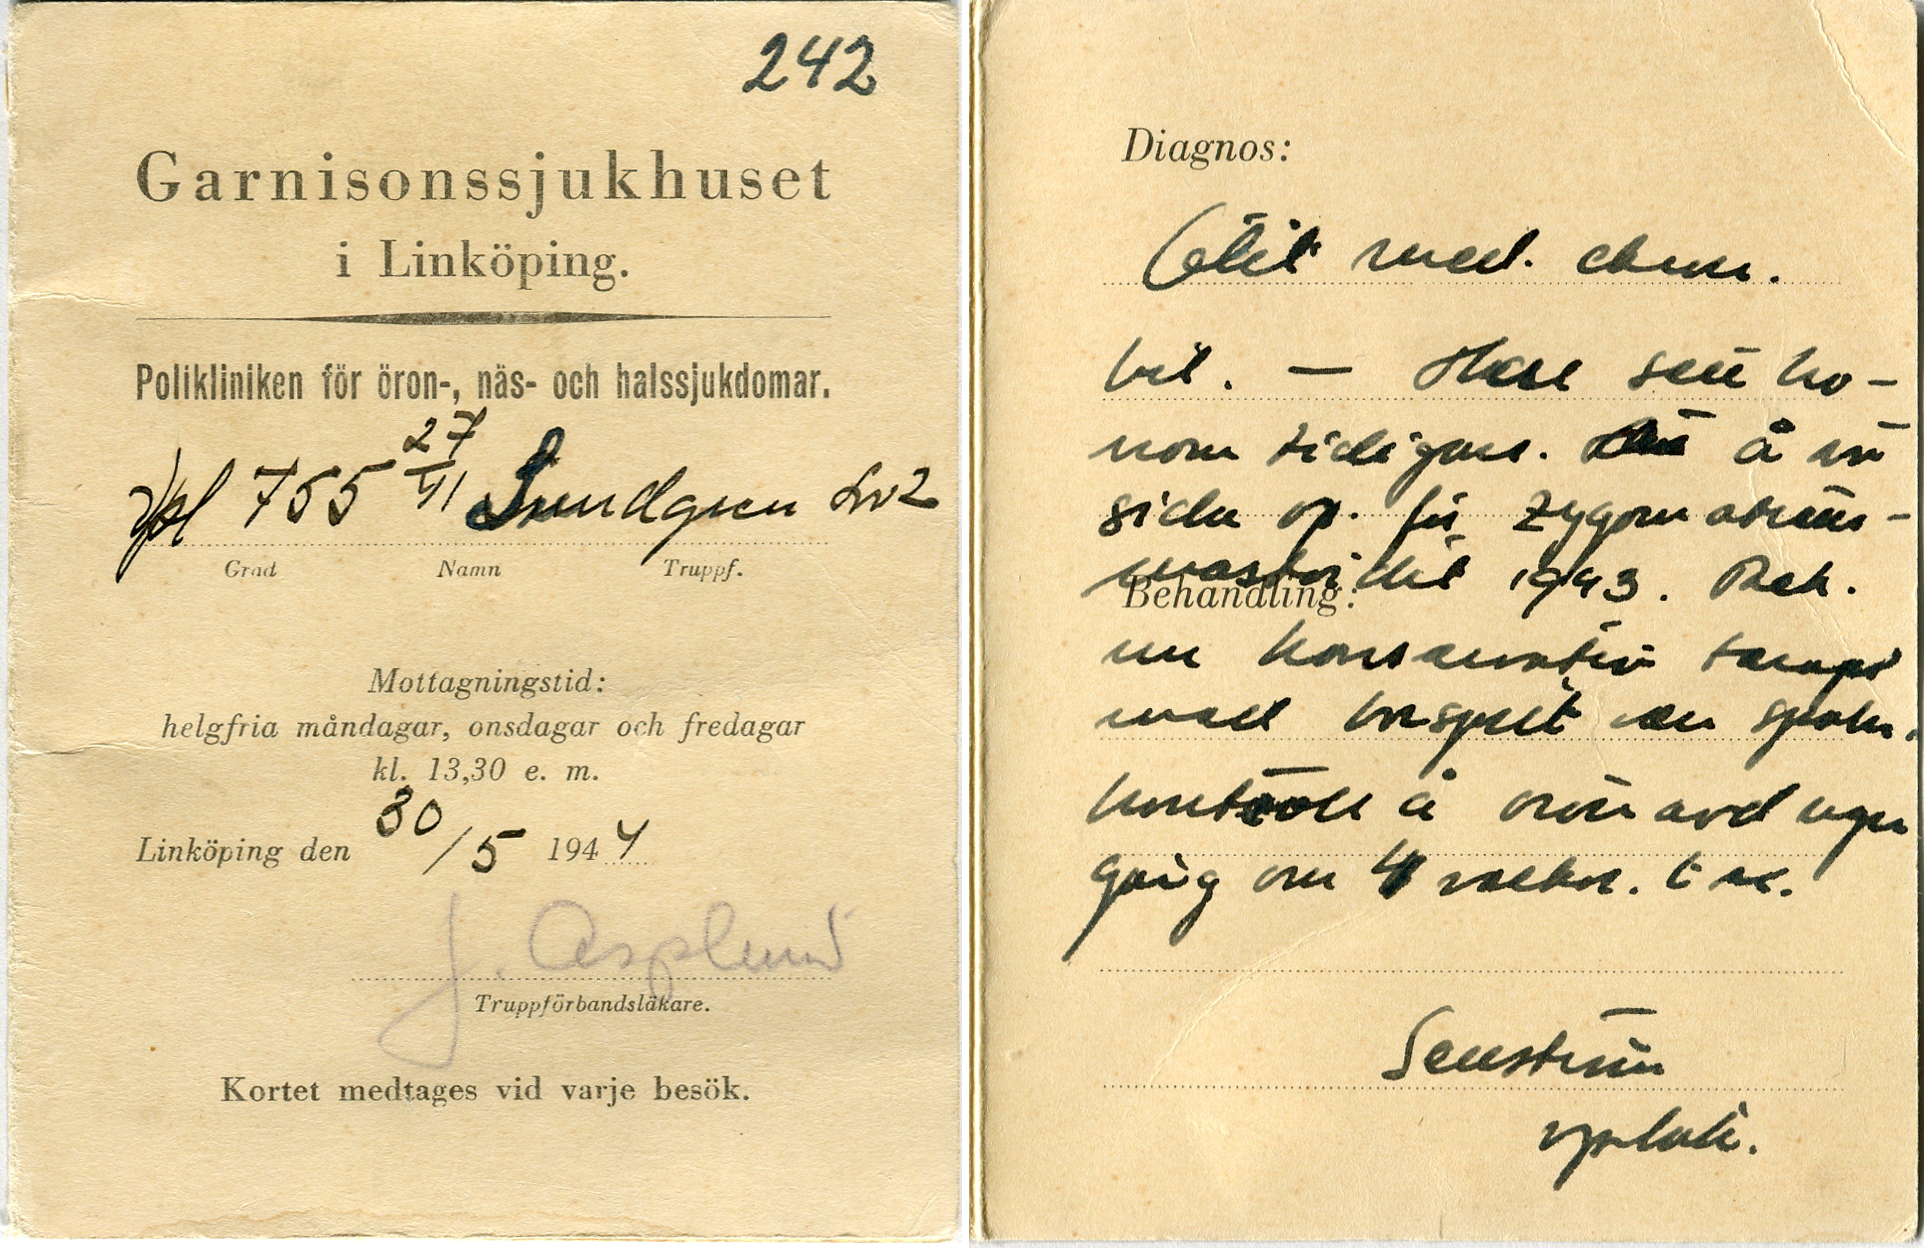 242
Garnisonssjukhuset
i Linköping.
Polikliniken för öron-, näs- och halssjukdomar.
Vpl 755 27/VI Lundgren Lv2
Grad Namn Truppf.
Mottagningstid:
helgfria måndagar, onsdagar och fredagar
kl. 13,30 e. m.
Linköping den 30/5 1944
J. Asplund
Truppförbandsläkare.
Kortet medtages vid varje besök.
Diagnos:
Otit med. chron.
bil. — Har sett ho-
nom tidigare. å
sida op. för zygomaticus-
mastoidit 1943. Beh.
Behandling:
nu konservativ terapi
med borsprit
kontroll å öronavd
gång om 4 veckor.
Senström